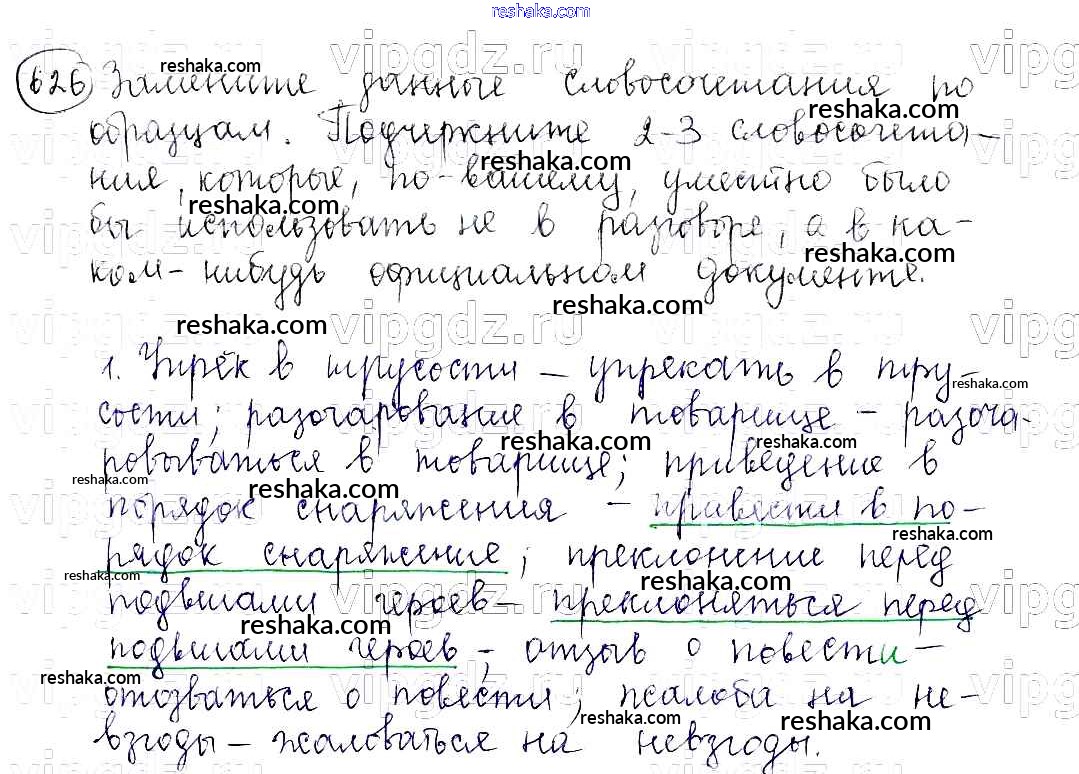 reshaka.com
626 Замените данные словосочетания по
образцам. Подчеркните 2-3 словосочета-
ния, которые, по-вашему, уместно было
бы использовать не в разговоре, а в ка-
ком-нибудь официальном документе.
1. Упрёк в трусости – упрекать в тру-
сости; разочарование в товарище – разоча-
ровываться в товарище; приведение в
порядок снаряжения – привести в по-
рядок снаряжение; преклонение перед
подвигами героев – преклоняться перед
подвигами героев; отзыв о повести –
отозваться о повести; жалоба на не-
взгоды – жаловаться на невзгоды.